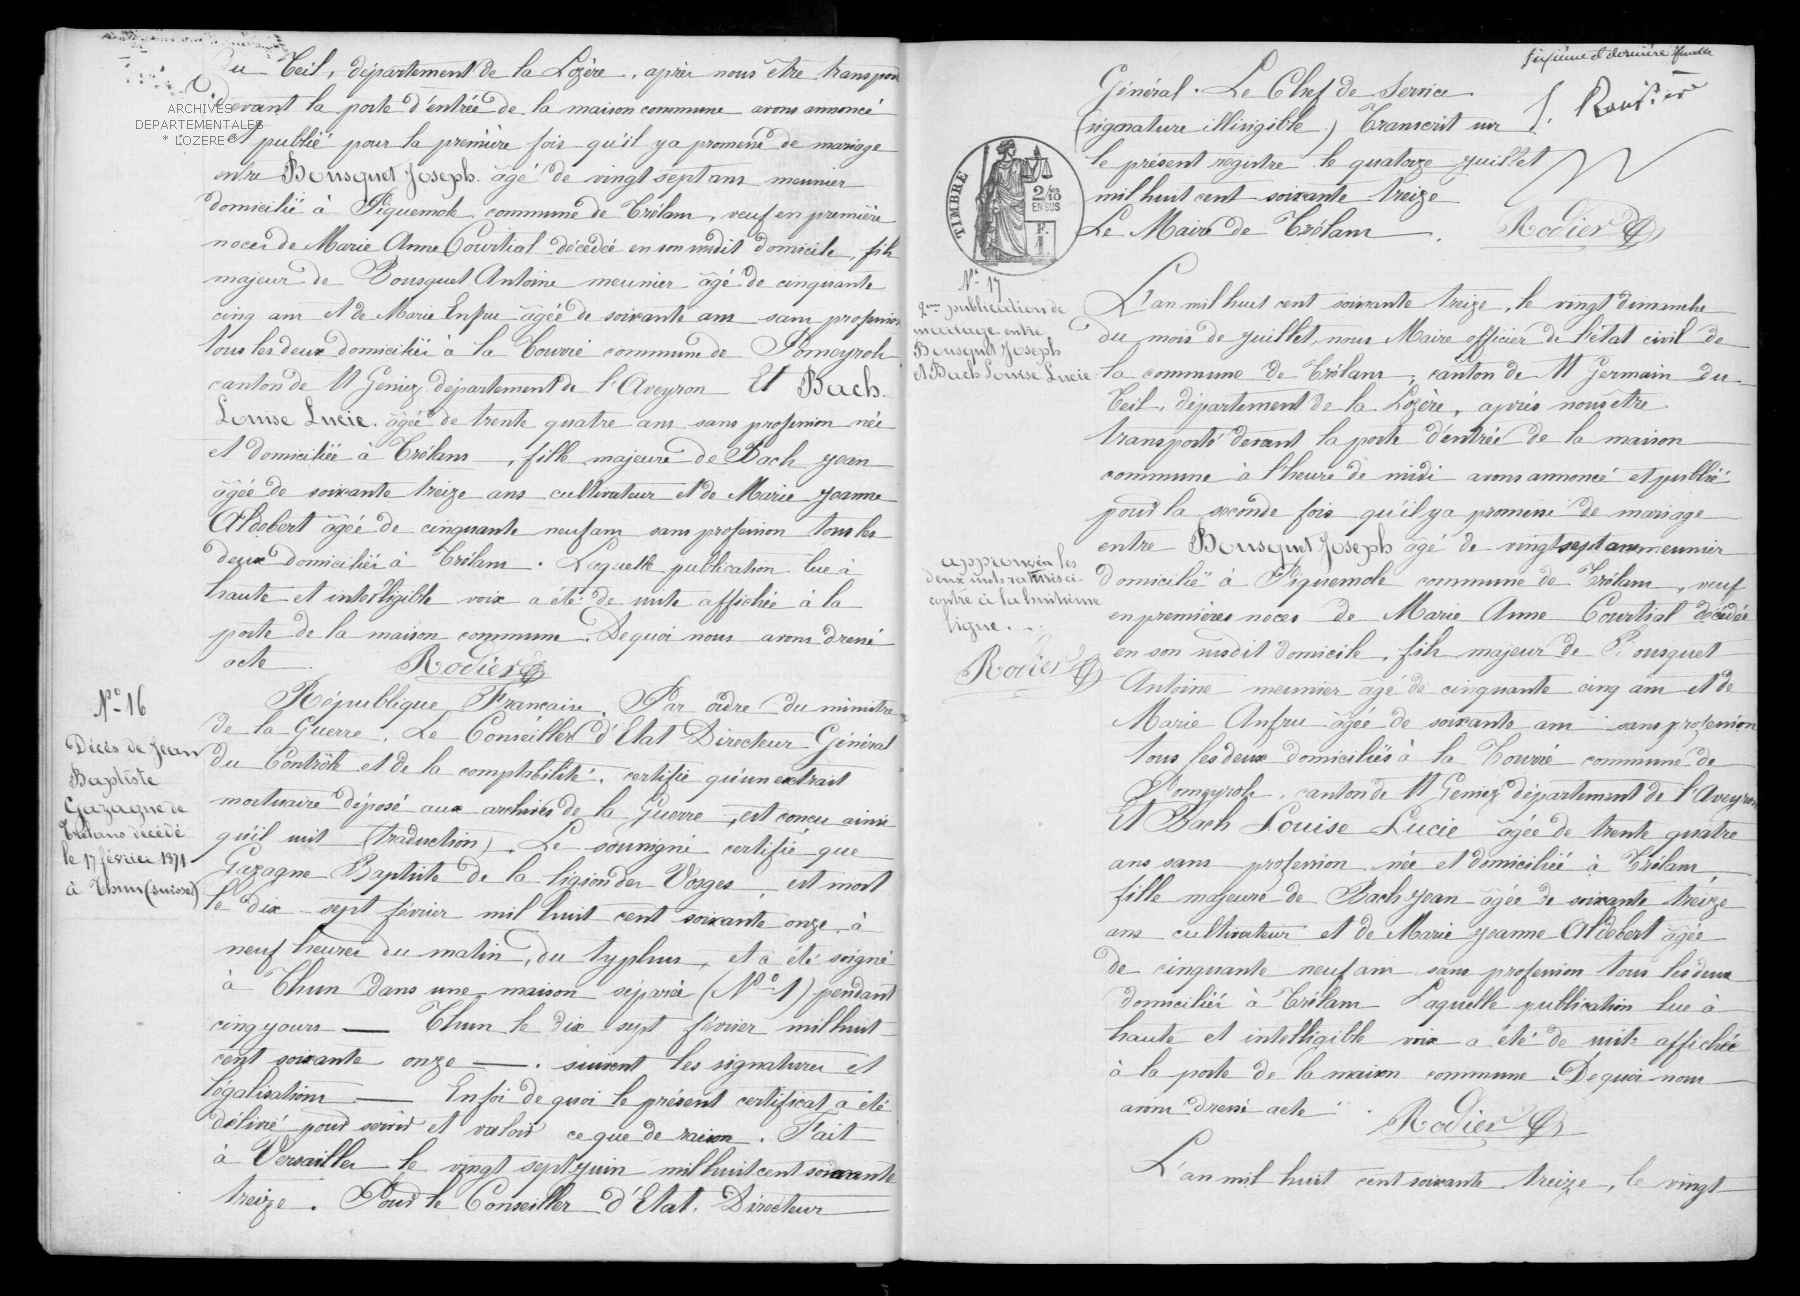 du Teil, département de la Lozère, après nous être transporté
devant la porte d'entrée de la maison commune avons annoncé
ARCHIVES
DEPARTEMENTALES
* LOZERE
et publié pour la première fois qu'il y a promesse de mariage
entre Bousquet Joseph. âgé de vingt sept ans meunier
domicilié à Piguemole commune de Trélans, veuf en première
noces de Marie Anne Courtial décédée en son susdit domicile, fils
majeur de Bousquet Antoine meunier âgé de cinquante
cinq ans et de Marie Enfru âgée de soixante ans sans profession
tous les deux domiciliés à la Tourré commune de Pomeyrols
canton de St Geniez département de l'Aveyron Et Bach
Louise Lucie. âgée de trente quatre ans sans profession née
et domiciliée à Trélans, fille majeure de Bach Jean
âgée de soixante treize ans cultivateur et de Marie Jeanne
Aldebert âgée de cinquante neuf ans sans profession tous les
deux domiciliés à Trélans. Laquelle publication lue à
haute et intelligible voix a été de suite affichée à la
porte de la maison commune. De quoi nous avons dressé
acte. Rodier
N° 16
Décès de Jean
Baptiste
Gazagne de
Trélans décédé
le 17 février 1871
à Thun (Suisse)
République Française. Par ordre du ministre
de la Guerre. Le Conseiller d'Etat Directeur Général
du Contrôle et de la comptabilité, certifie qu'un extrait
mortuaire déposé aux archives de la Guerre, est concu ainsi
qu'il suit (traduction). Le soussigné certifie que
Gazagne Baptiste de la légion des Vosges, est mort
le dix sept février mil huit cent soixante onze, à
neuf heures du matin, du typhus, et a été soigné
à Thun dans une maison séparée (N° 1) pendant
cinq jours — Thun le dix sept février mil huit
cent soixante onze —. suivent les signatures et
légalisations — En foi de quoi le présent certificat a été
délivré pour servir et valoir ce que de raison. Fait
à Versailles le vingt sept juin mil huit cent soixante
treize. Pour le Conseiller d'Etat. Directeur
sixième et dernière feuille
Général. Le Chef de Service.
(signature illisigible.) Transcrit sur
le présent registre le quatorze juillet
mil huit cent soixante treize
Le Maire de Trélans. Rodier
TIMBRE
2/10
EN SUS
F.
1
N° 17
2me publication de
mariage entre
Bousquet Joseph
et Bach Louise Lucie
L'an mil huit cent soixante treize, le vingt dimanche
du mois de juillet, nous Maire officier de l'état civil de
la commune de Trélans, canton de St Germain du
Teil, département de la Lozère, après nous être
transporté devant la porte d'entrée de la maison
commune à l'heure de midi avons annoncé et publié
pour la seconde fois qu'il y a promesse de mariage
entre Bousquet Joseph âgé de vingt sept ans meunier
domicilié à Piguemole commune de Trélans, veuf
en premières noces de Marie Anne Courtial décédée
en son susdit domicile, fils majeur de Bousquet
Antoine meunier âgé de cinquante cinq ans et de
Marie Anfru âgée de soixante ans sans profession
tous les deux domiciliés à la Tourré commune de
Pomeyrols, canton de St Geniez département de l'Aveyron
Et Bach Louise Lucie âgée de trente quatre
ans sans profession née et domiciliée à Trélans,
fille majeure de Bach Jean âgée de soixante treize
ans cultivateur et de Marie Jeanne Aldebert âgée
de cinquante neuf ans sans profession tous les deux
domiciliés à Trélans Laquelle publication lue à
haute et intelligible voix a été de suite affichée
à la porte de la maison commune De quoi nous
avons dressé acte. Rodier
approuvés les
deux mots
contre à la huitième
ligne.
Rodier
L'an mil huit cent soixante treize, le vingt